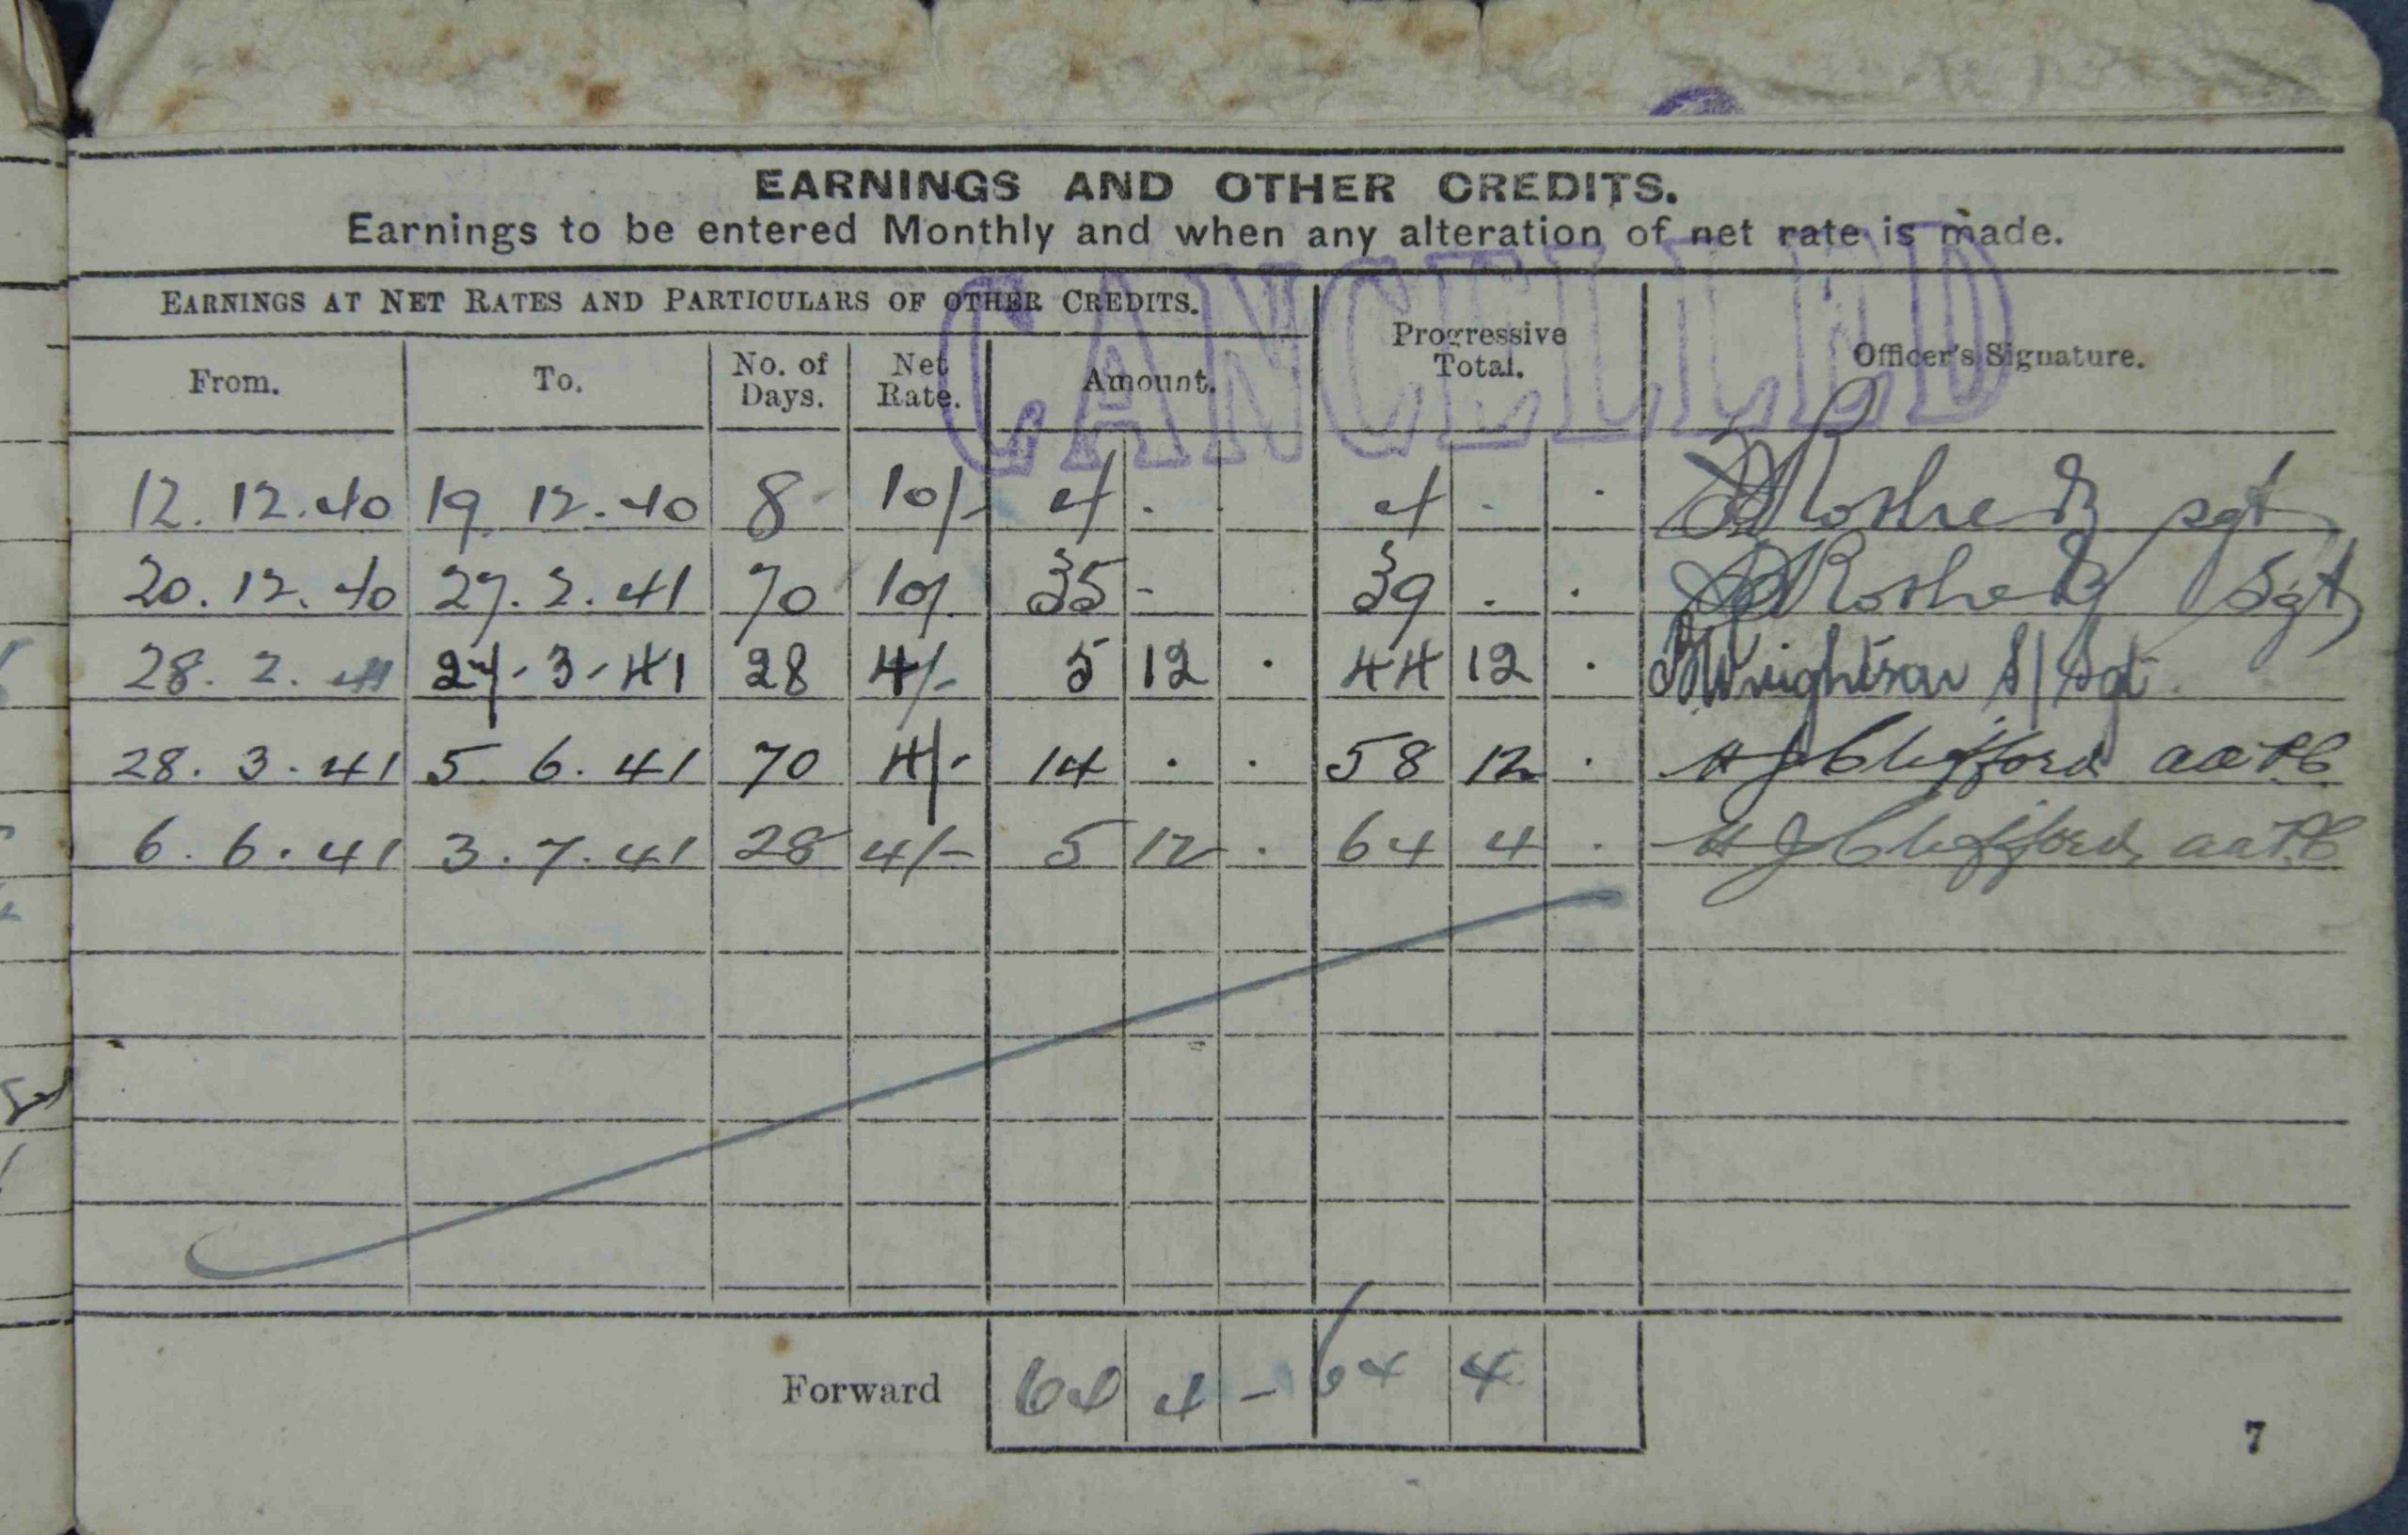 EARNINGS AND OTHER CREDITS.
Earnings to be entered Monthly and when any alteration of net rate is made.
CANCELLED
EARNINGS AT NET RATES AND PARTICULARS OF OTHER CREDITS. Progressive Total. Officer's Signature.
From. To. No. of Days. Net Rate. Amount.
12.12.40 19.12.40 8 10/- 4 . 4 . . sgt
20.12.40 27.2.41 70 10/- 35 - 39 . . Sgt
28.2.41 27-3-41 28 4/- 5 12 . 44 12 . S/Sgt
28.3.41 5.6.41 70 4/- 14 . . 58 12 . H J Clifford
6.6.41 3.7.41 28 4/- 5 12 . 64 4 . H J Clifford
Forward 64 4 - 64 4
7